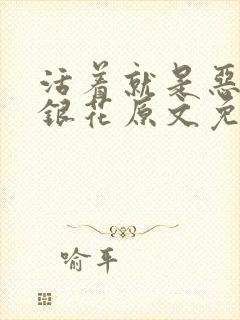 活着就是恶
银花原文免
喻平